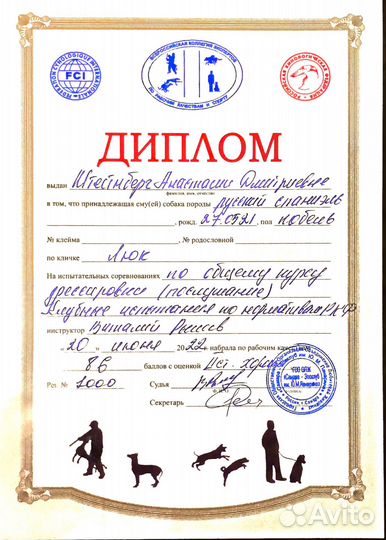 FCI
ВСЕРОССИЙСКАЯ КОЛЛЕГИЯ ЭКСПЕРТОВ
ПО РАБОЧИМ КАЧЕСТВАМ И СПОРТУ
РОССИЙСКАЯ КИНОЛОГИЧЕСКАЯ ФЕДЕРАЦИЯ
ДИПЛОМ
выдан Штейнберг Анастасии Дмитриевне
фамилия, имя, отчество
в том, что принадлежащая ему(ей) собака породы русский спаниель
, рожд. 27.0521, пол кобель
№ клейма , № родословной
по кличке Люк
На испытательных соревнованиях по общему курсу
дрессировке (послушание)
Клубные испытания по нормативам РКФ
инструктор Виталий
"20" июня 2022 набрала по рабочим качествам
86 баллов с оценкой
Рег. № 1000 Судья
Секретарь
Avito